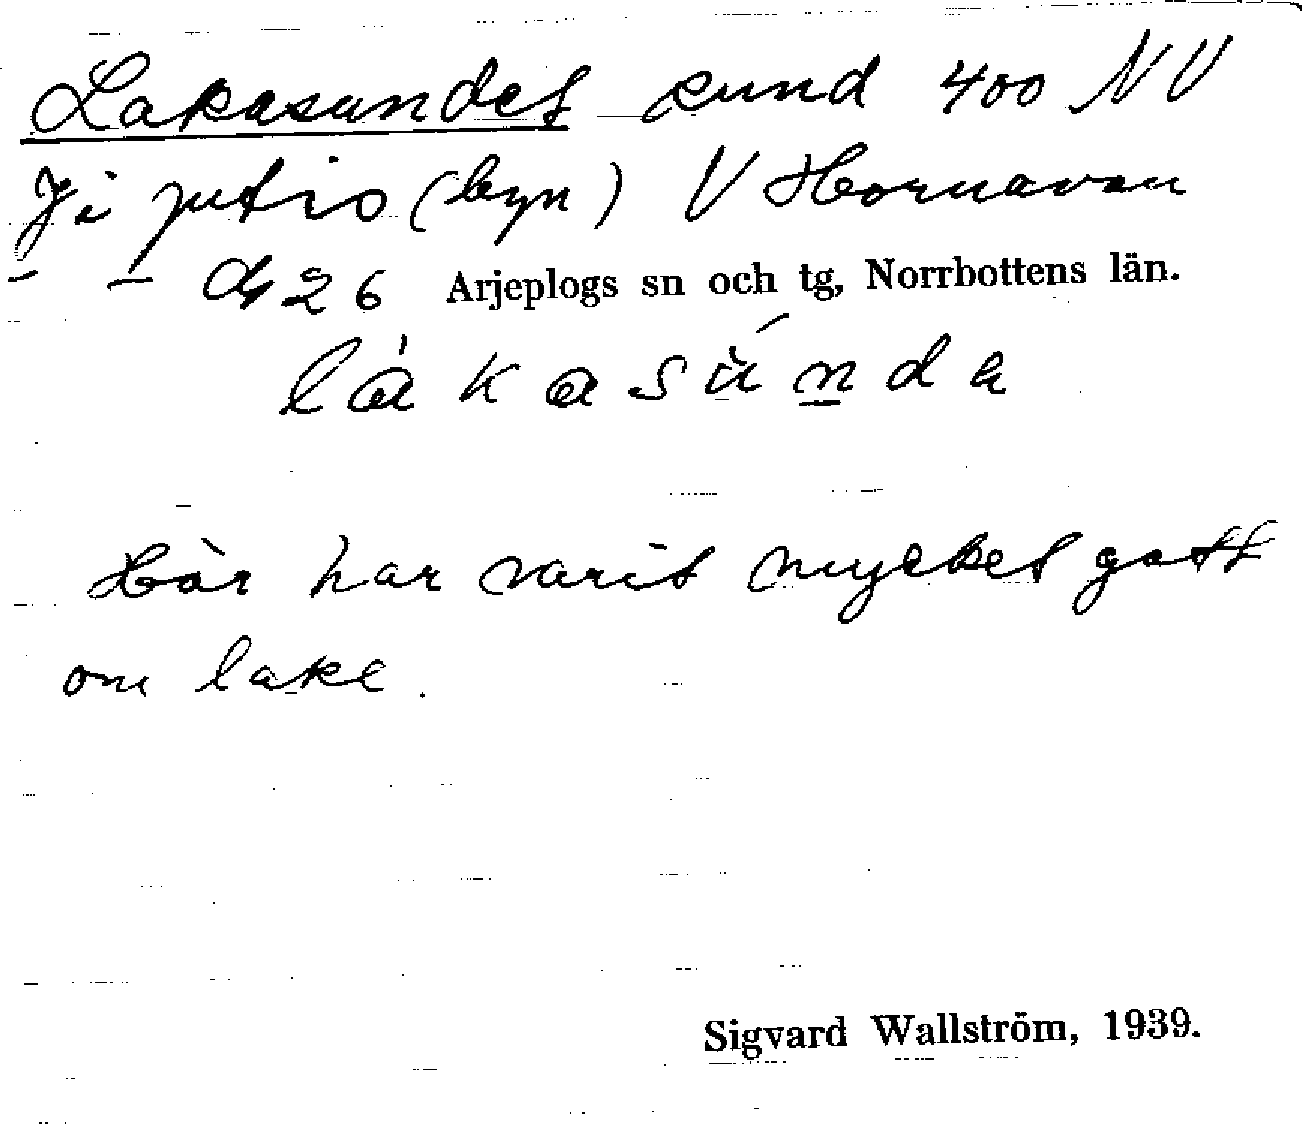 Lakasundet sund 400 NV
Jijutis (byn) V Hornavan
- - d4 26 Arjeplogs sn och tg, Norrbottens län.
làkasùnda
Här har varit mycket gott
om lake.
Sigvard Wallström, 1939.